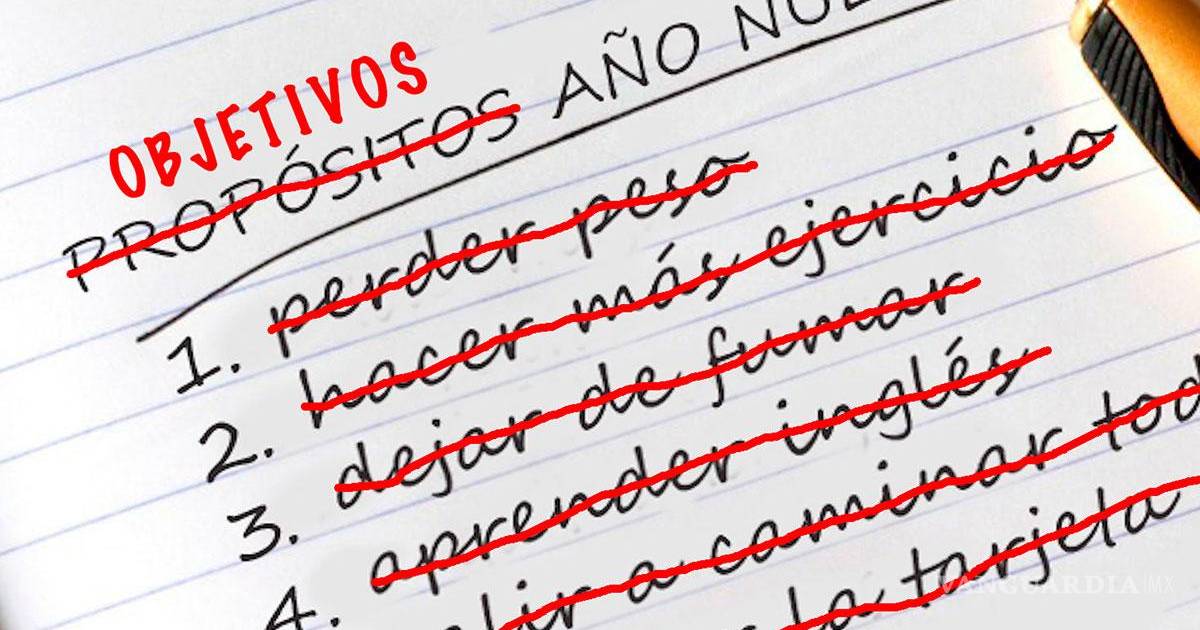 OBJETIVOS
PROPÓSITOS AÑO
1. perder peso
2. hacer más ejercicio
3. dejar de fumar
4. aprender inglés
a caminar
la tarjeta
VANGUARDIA MX